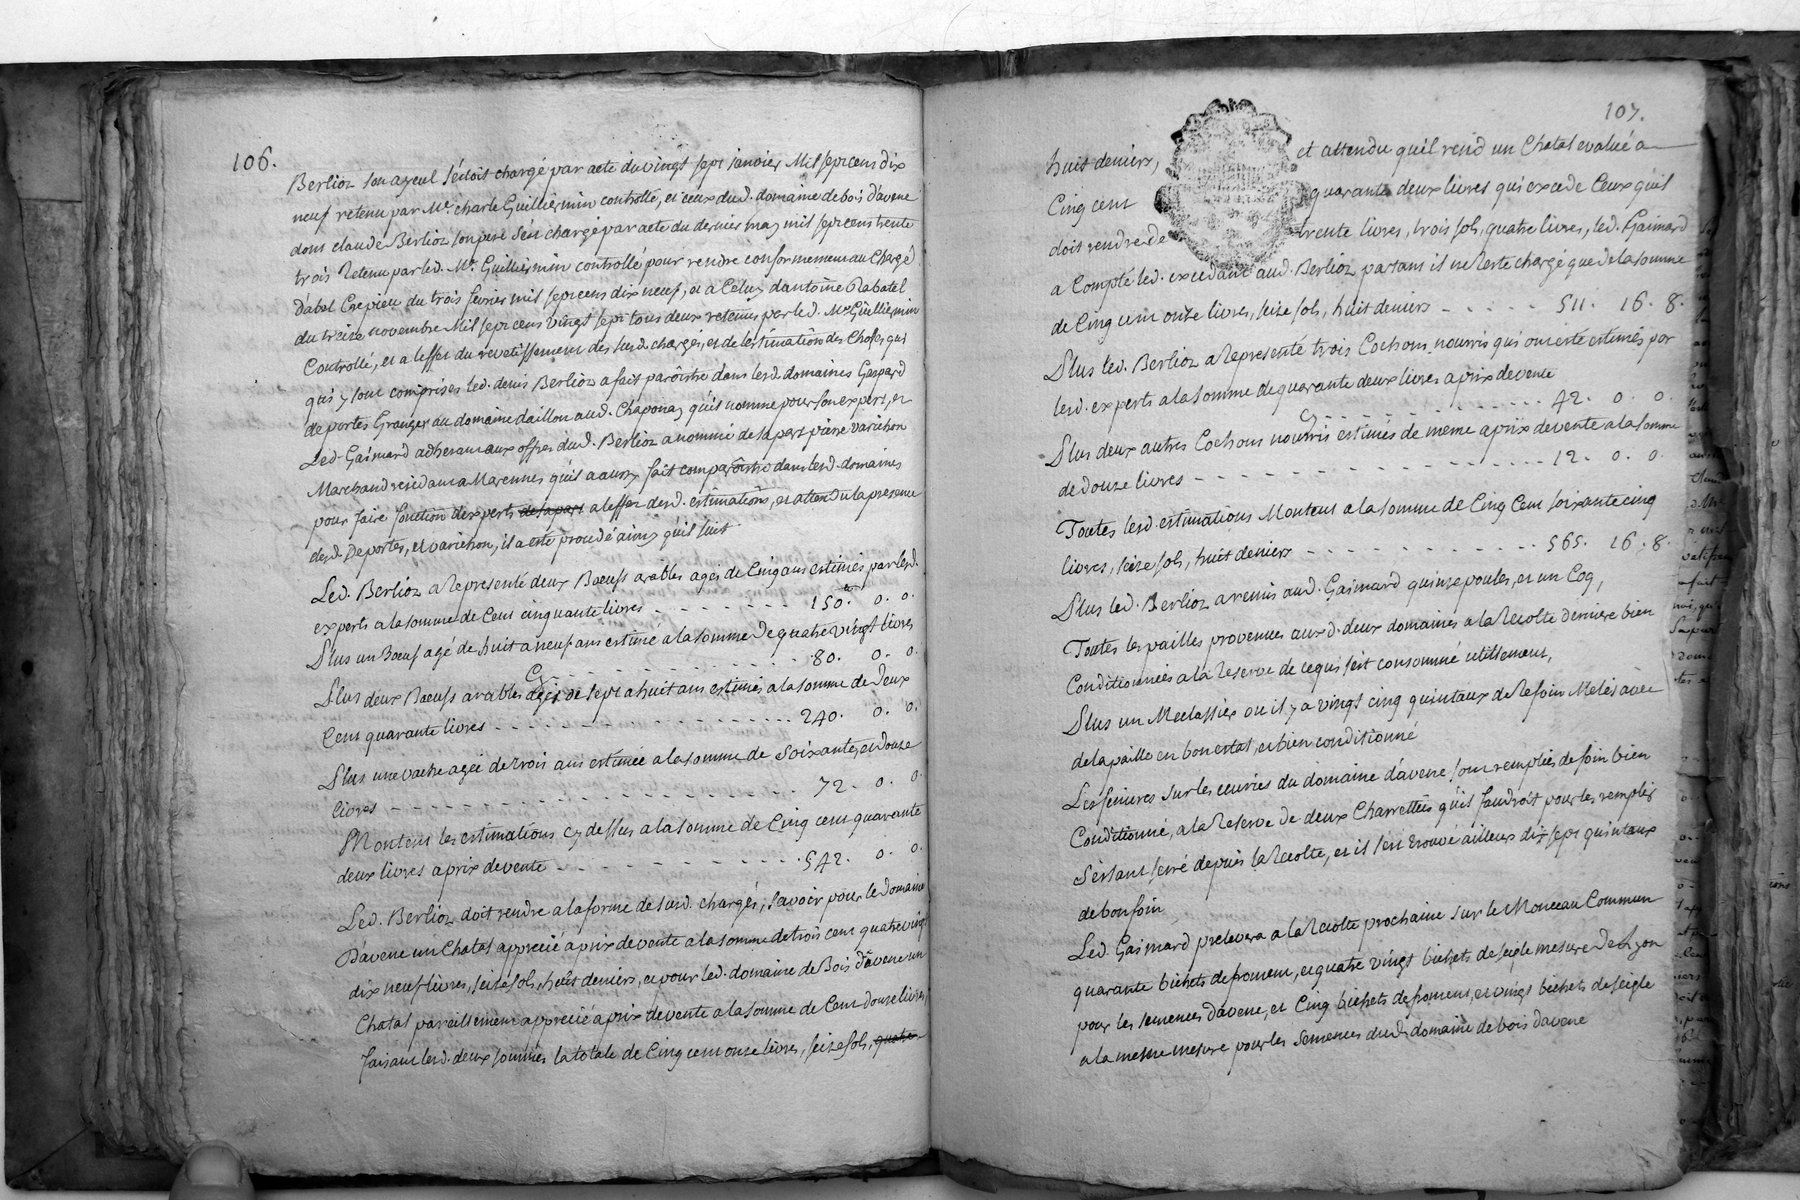 106.
Berlioz son ayeul s'étoit chargé par acte du vingt sept janvier Mil sept cens dix
neuf retenu par Me. charle Guilliermin controllé, et ceux dud. domaine de bois d'avene
dont claude Berlioz son pere s'est chargé par acte du dernier may mil sept cens trente
trois Retenu par led. Me. Guilliermin controllé pour rendre conformement au Chargé
d'abel Crepieu du trois fevrier mil sept cens dix neuf, et a Celuy d'antoine Rabatel
du treize novembre Mil sept cens vingt sept tous deux retenus par led. Me Guilliermin
Controllé, et a l'effet du revetissement des susd. charges, et de l'estimation des Choses qui
qui y sont comprises led. denis Berlioz a fait paroître dans lesd. domaines Gaspard
deportes Granger au domaine daillon aud. Chaponay qu'il nomme pour son expert, et
Led. Gaimard adherant aux offres dud. Berlioz a nommé de sa part pierre varichon
Marchand residant a Marennes qu'il a aussy fait comparoître dans lesd. domaines
pour faire fonction d'experts de sa part a l'effet desd. estimations, et attendu la presence
desd. Deportes, et varichon, il a esté procedé ainsy qu'il suit
Led. Berlioz a representé deux Boeufs arables agés de Cinq ans estimés par lesd.
experts a la somme de Cent cinquante livres - - - - - - - - 150. 0. 0.
Plus un Boeuf agé de huit a neuf ans estimé a la somme de quatre vingt livres
Cy - - - - - - - - - - 80. 0. 0.
Plus deux Boeufs arables agés de sept a huit ans estimés a la somme de deux
Cent quarante livres - - - - - - - - - - - - - - 240. 0. 0.
Plus une vache agée de trois ans estimée a la somme de soixante, et douze
livres - - - - - - - - - - - - - - - - - - 72. 0. 0.
Montent les estimations cy dessus a la somme de Cinq cent quarante
deux livres a prix de vente - - - - - - - - - - 542. 0. 0.
Led. Berlioz doit rendre a la forme de susd. charges, savoir pour le domaine
D'avene un Chatal apprecié a prix de vente a la somme de trois cent quatre vingt
dix neuf livres, seize sols, huit deniers, et pour led. domaine de Bois d'avene un
Chatal pareillement apprecié a prix de vente a la somme de Cent douze livres,
faisant lesd. deux sommes la totale de Cinq cent onze livres, seize sols, quatre
107.
huit deniers, et attendu qu'il rend un Chatal evalué a
Cinq cent quarante deux livres qui excede Ceux qu'il
doit rendre de trente livres, trois sols, quatre livres, led. Gaimard
a Compté led. excedant aud. Berlioz partant il ne Reste chargé que de la somme
de Cinq cent onze livres, seize sols, huit deniers - - - - - 511. 16. 8.
Plus led. Berlioz a Representé trois Cochons nourris qui ont esté estimés par
lesd. experts a la somme de quarante deux livres a prix de vente
Cy - - - - - - - - - - - - 42. 0. 0.
Plus deux autres Cochons nourris estimés de meme a prix de vente a la somme
de douze livres - - - - - - - - - - - - - - - - 12. 0. 0.
Toutes lesd. estimations Montent a la somme de Cinq Cent soixante cinq
livres, seize sols, huit deniers - - - - - - - - - - - - 565. 16. 8.
Plus led. Berlioz a remis aud. Gaimard quinze poules, et un Coq,
Toutes les pailles provenues auxd. deux domaines a la Recolte derniere bien
Conditionnées a la Reserve de ce qui s'est consommé utillement,
Plus un Meclassier ou il y a vingt cinq quintaux de Refoin Melés avec
de la paille en bon estat, et bien conditionné
Les fenieres sur les ecuries du domaine d'avene sont remplies de foin bien
Conditionné, a la Reserve de deux Charrettées qu'il faudroit pour les remplir
s'estant serré depuis la Recolte, et il s'est trouvé ailleurs dix sept quintaux
de bon foin,
Led. Gaimard prelevera a la Recolte prochaine sur le Monceau Commun
quarante bichets de froment, et quatre vingt bichets de seigle mesure de Lyon
pour les semences d'avene, et Cinq bichets de froment, et vingt bichets de seigle
a la mesme mesure pour les semences dud. domaine de bois d'avene